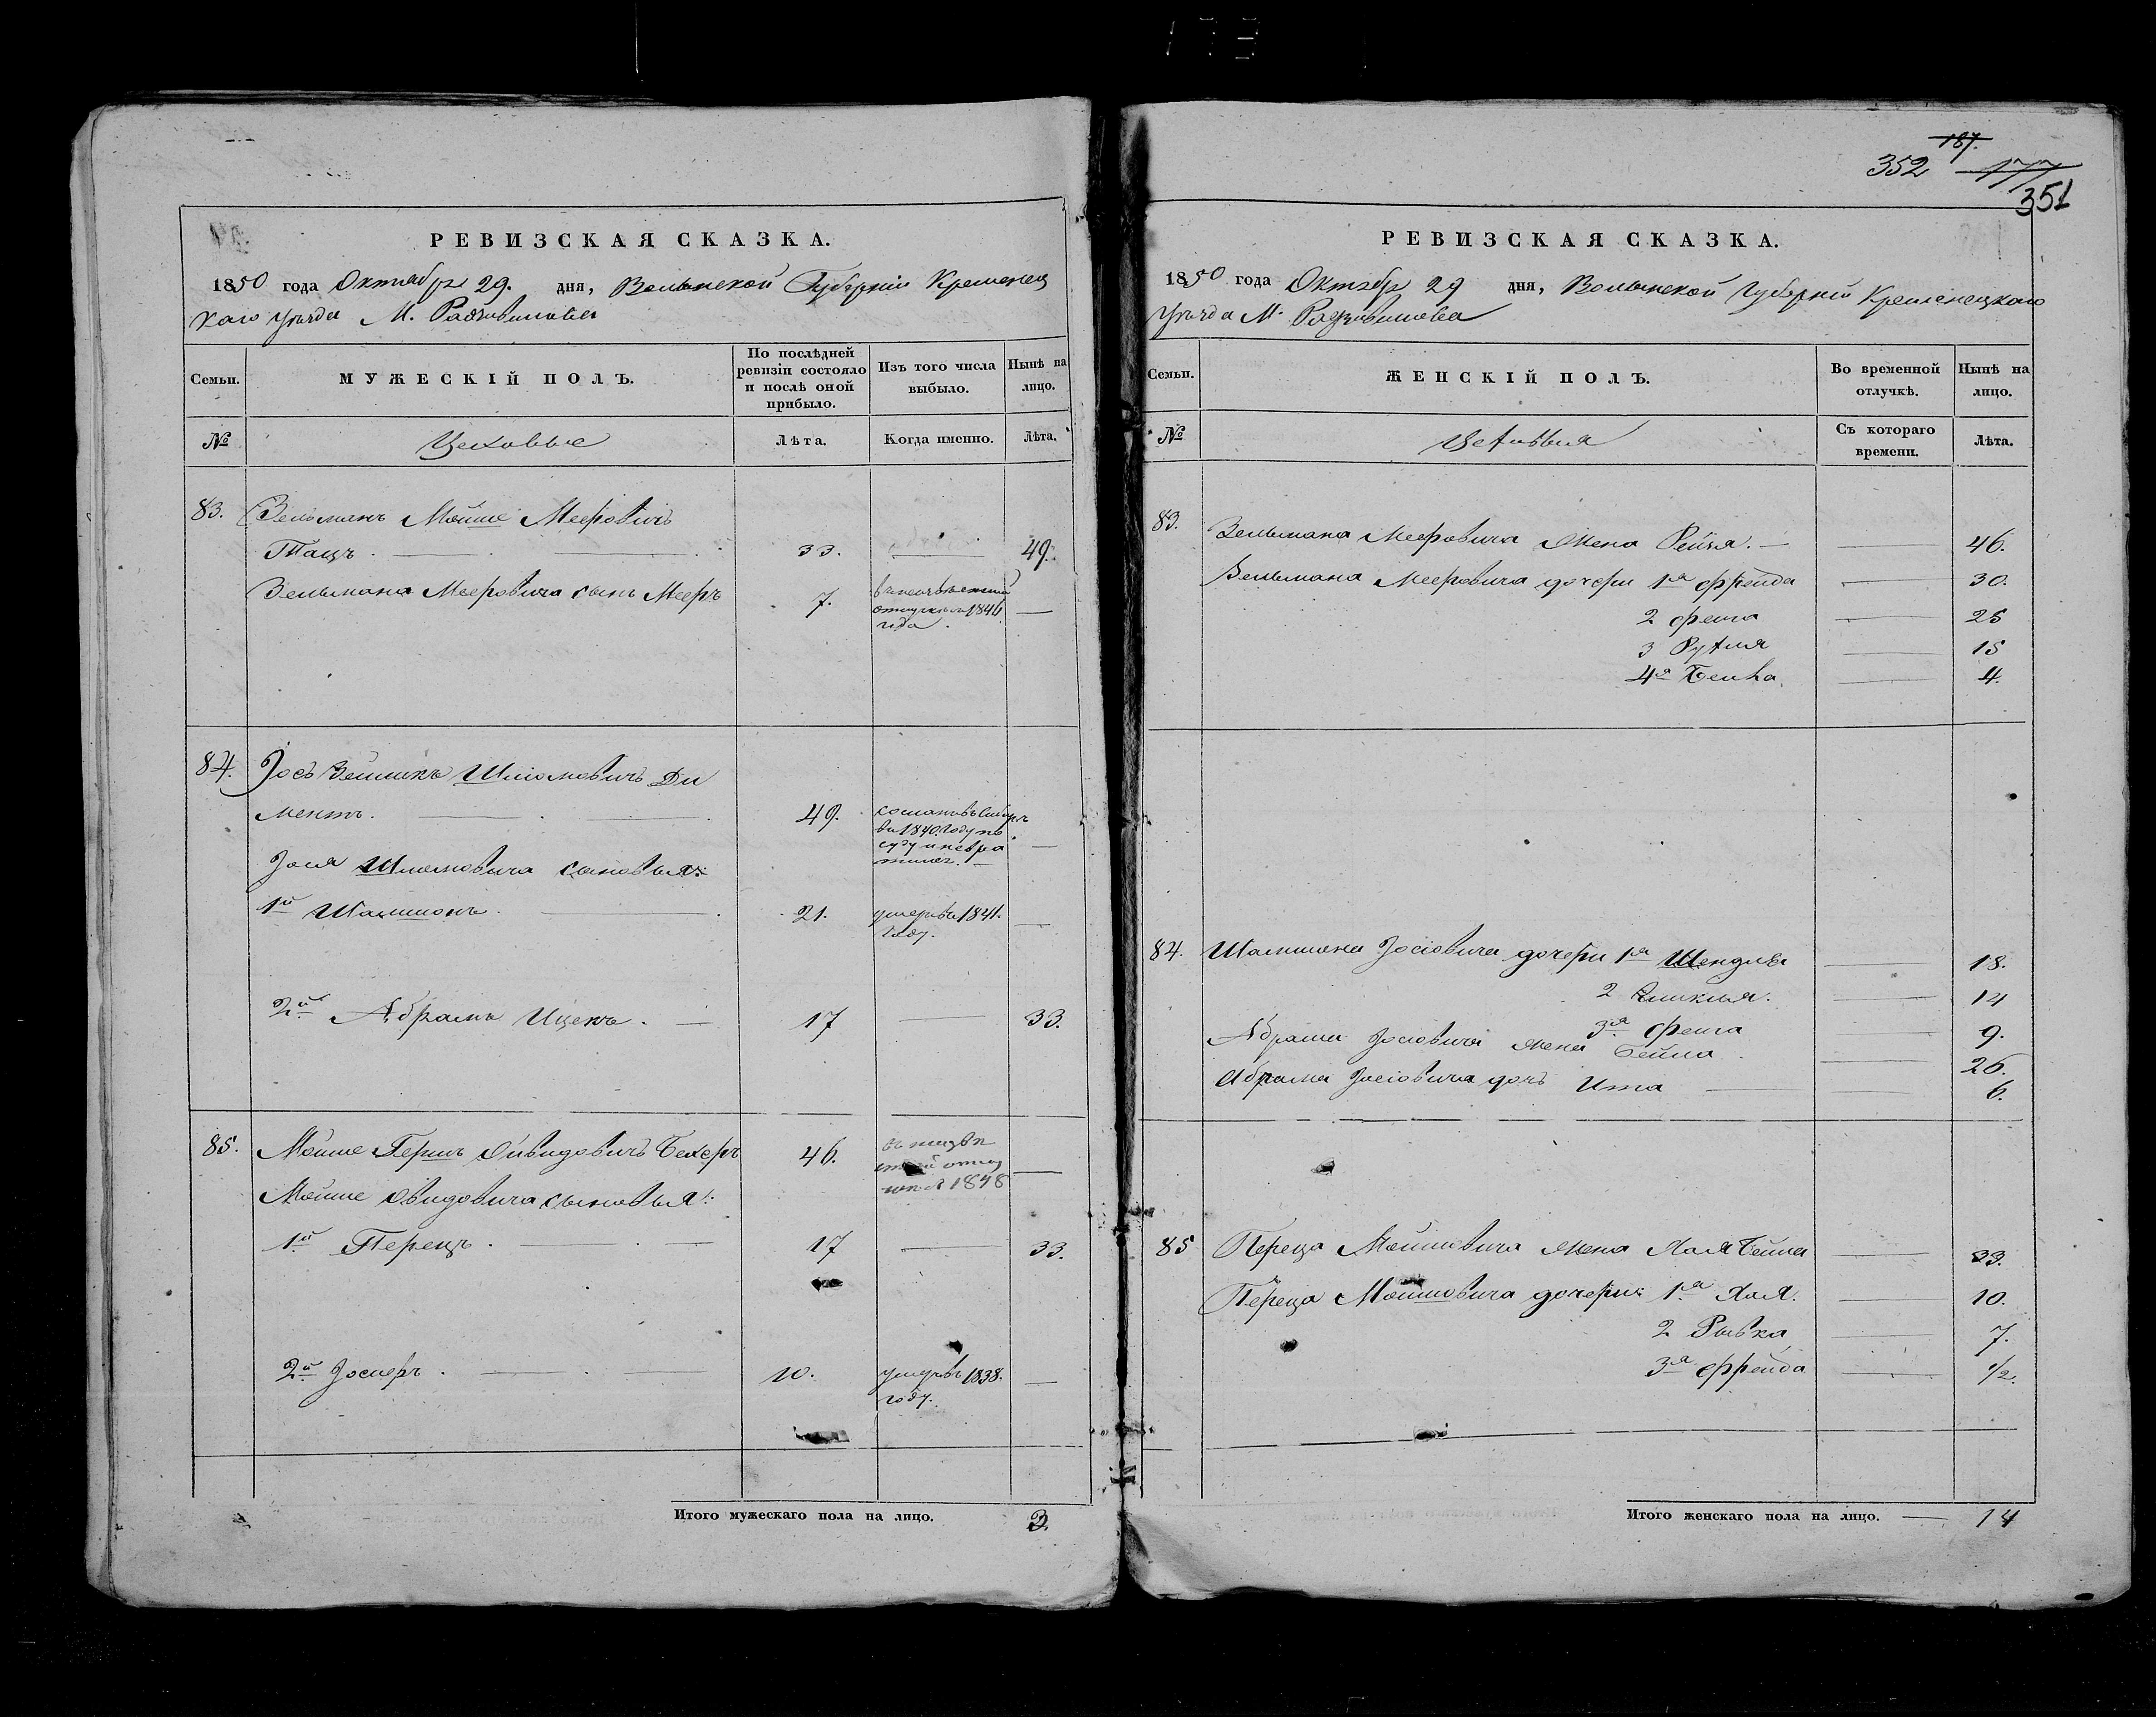 РЕВИЗСКАЯ СКАЗКА.
1850 года Октября 29. дня, Волынской Губерніи Кременец
каго уѣзда М. Радзивилова
Семьи.
МУЖЕСКІЙ ПОЛЪ.
По послѣдней ревизіи состояло и послѣ оной прибыло.
Изъ того числа выбыло.
Нынѣ на лицо.
№
Цеховые
Лѣта.
Когда именно.
Лѣта.
83. Зельманъ Мойше Меѣровичъ
Тацъ. 33. 49.
Зельмана Мееровича сынъ Мееръ 7.
отлучкѣ 1846
года.
84. Іосъ Зелигъ Шліомовичъ Ди
ментъ. 49. сосланъ въ Сибирь
въ 1840 году по
суду
Іося Шліомовича сыновья:
1й Шамшонъ. 21. умеръ въ 1841.
году.
2й Абрамъ Ицекъ. 17 33.
85. Мойше Гершъ Овидовичъ Бекеръ 46.
1848
Мойше Овидовича сыновья:
1й Перецъ. 17 33.
2й Іосперъ. 10. умеръ въ 1838.
году.
Итого мужескаго пола на лицо. 3.
187.
352 177
351
РЕВИЗСКАЯ СКАЗКА.
1850 года Октября 29 дня, Волынской Губерніи Кременецкаго
уѣзда М. Радзивилова
Семьи.
ЖЕНСКІЙ ПОЛЪ.
Во временной отлучкѣ.
Нынѣ на лицо.
№
Цеховыя
Съ котораго времени.
Лѣта.
83. Зельмана Мееровича жена Рейзя. 46.
Зельмана Мееровича дочери 1я Фрейда 30.
2 Фейга 25
3 Рухля 15
4я Бейла 4.
84. Шамшона Іосіовича дочери 1я Шендля 18.
2 14
3я Фейга 9.
Абрама Іосіовича жена Бейла 26.
Абрама Іосіовича дочь Ита 6.
85 Переца Мойшовича жена Хая Бейла 33.
Переца Мойшовича дочери: 1я Хая. 10.
2 Рывка 7.
3я Фрейда 1/2.
Итого женскаго пола на лицо. 14